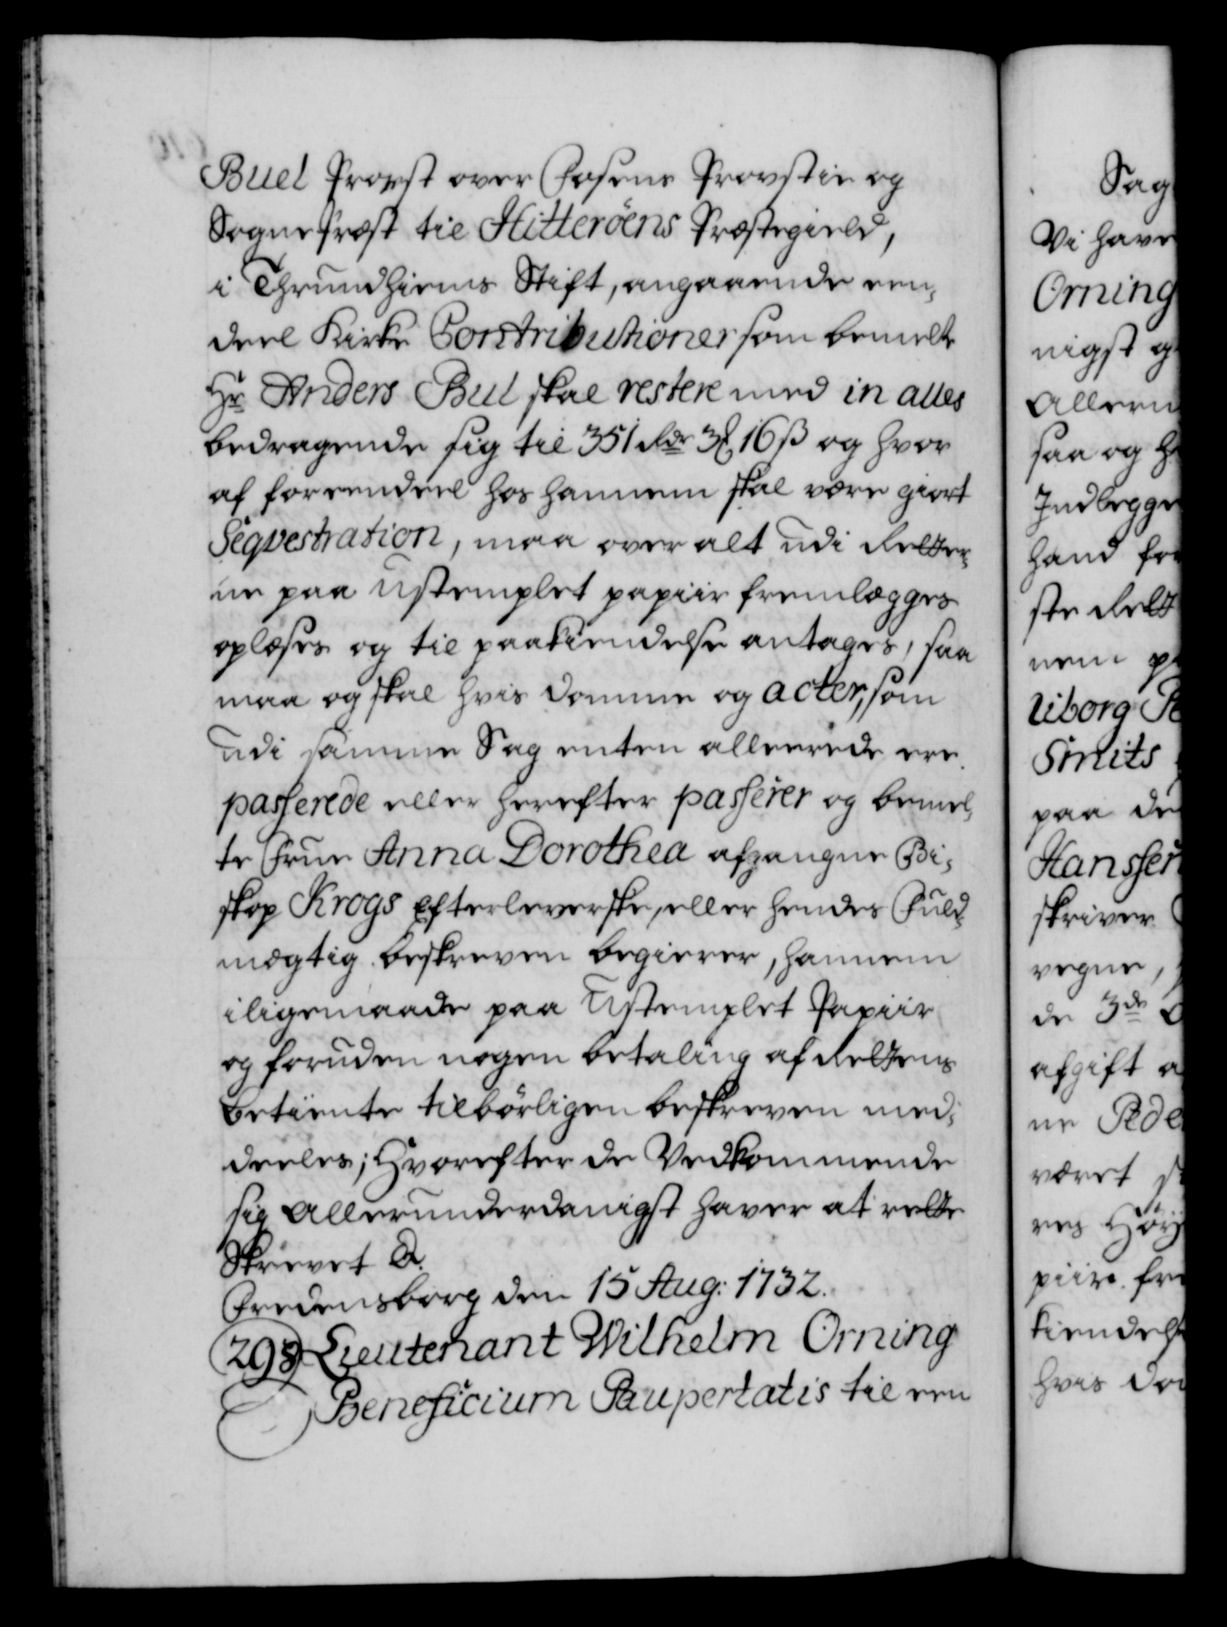 Buel Provst over Fosens Provstie og
Sognepræst til Hitteröens Præstegield,
i Thrundhiems Stift, angaaende een,
deel Kirke Contributioner som bemelte
Hr Anders Bul skal restere med in alles
bedragende sig til 351 Rdr 3 16 ß og hvor
af foreendeel hos hannem skal være giort
Seqvestration, maa over alt udi Retter,
ne paa Ustemplet papiir fremlægges
oplæses og til paakiendelse antages, saa
maa og skal hvis Domme og acter, som
udi samme Sag enten allereede ere
passerede eller herefter passerer og bemel,
te Frue Anna Dorothea afgangne Bi,
skop Krogs Efterleverske, eller hendes Fuld,
mægtig beskreven begierer, hannem
iligemaade paa Ustemplet Papiir
og foruden nogen betaling af Rettens
betiente tilbörligen beskreven med,
deeles; Hvorefter de Vedkommende
sig Allerunderdanigst haver at rette
Skrevet &.
Fredensborg den 15 Aug: 1732.
298 Lieutenant Wilhelm Orning
Beneficium Paupertatis til een
Sag
Vi have
Orning
nigst g
Allern
saa og h
Indlegge
hand for
ste Rett
nem p
Viborg
Smits
paa de
Hanssen
skriver
vegne,
de 3de
afgift a
ne Pede
været s
res Höy
piir. fre
kiendels
hvis do